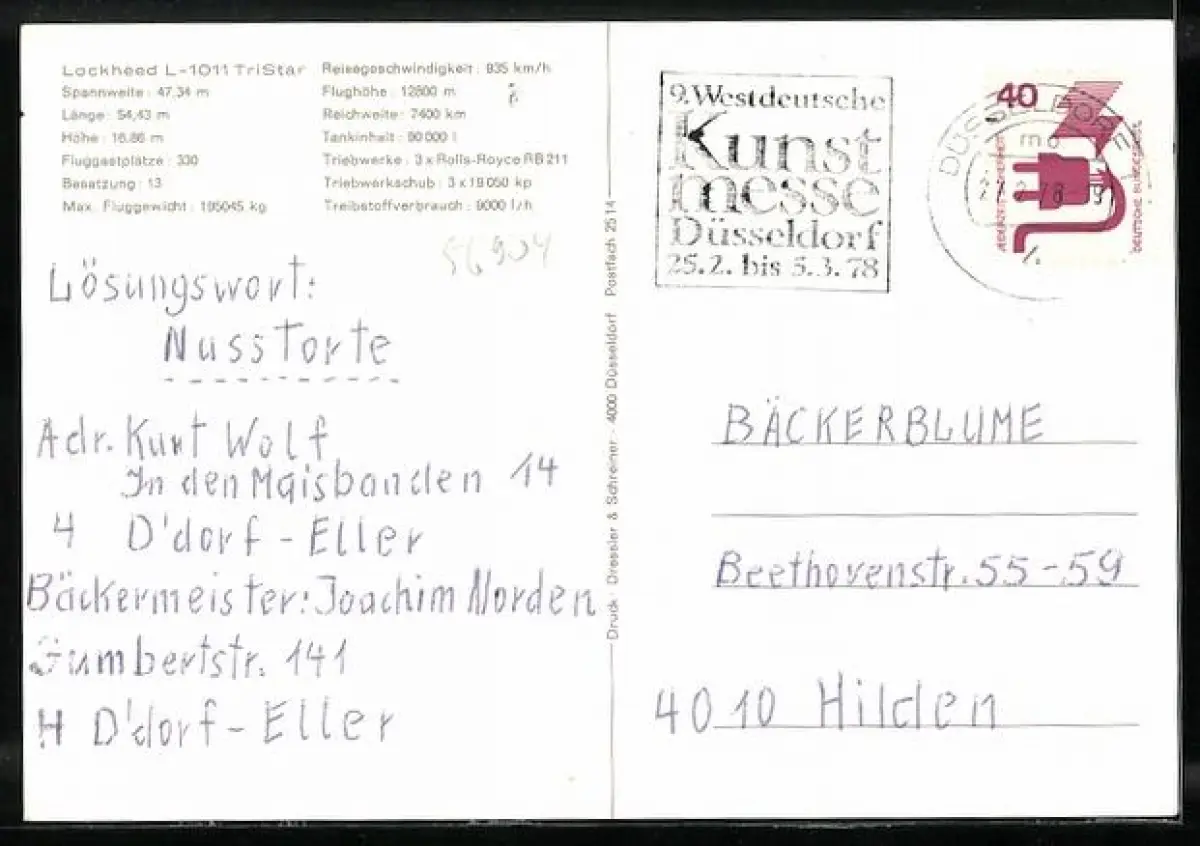 Lockheed L-1011 TriStar
Spannweite: 47,34 m
Länge: 54,43 m
Höhe: 16,86 m
Fluggastplätze: 330
Besatzung: 13
Max. Fluggewicht: 195045 kg
Reisegeschwindigkeit: 935 km/h
Flughöhe: 12800 m
Reichweite: 7400 km
Tankinhalt: 90000 l
Triebwerke: 3 x Rolls-Royce RB 211
Triebwerkschub: 3 x 19050 kp
Treibstoffverbrauch: 9000 l/h
56904
Lösungswort:
Nusstorte
Adr. Kurt Wolf
In den Maisbanden 14
4 D'dorf-Eller
Bäckermeister: Joachim Norden
Gumbertstr. 141
4 D'dorf-Eller
Druck: Dressler & Schreiner · 4000 Düsseldorf Postfach 2514
9. Westdeutsche
Kunst
messe
Düsseldorf
25.2. bis 5.3.78
DÜSSELDORF
40
JEDERZEIT SICHERHEIT
DEUTSCHE BUNDESPOST
BÄCKERBLUME
Beethovenstr. 55-59
4010 Hilden